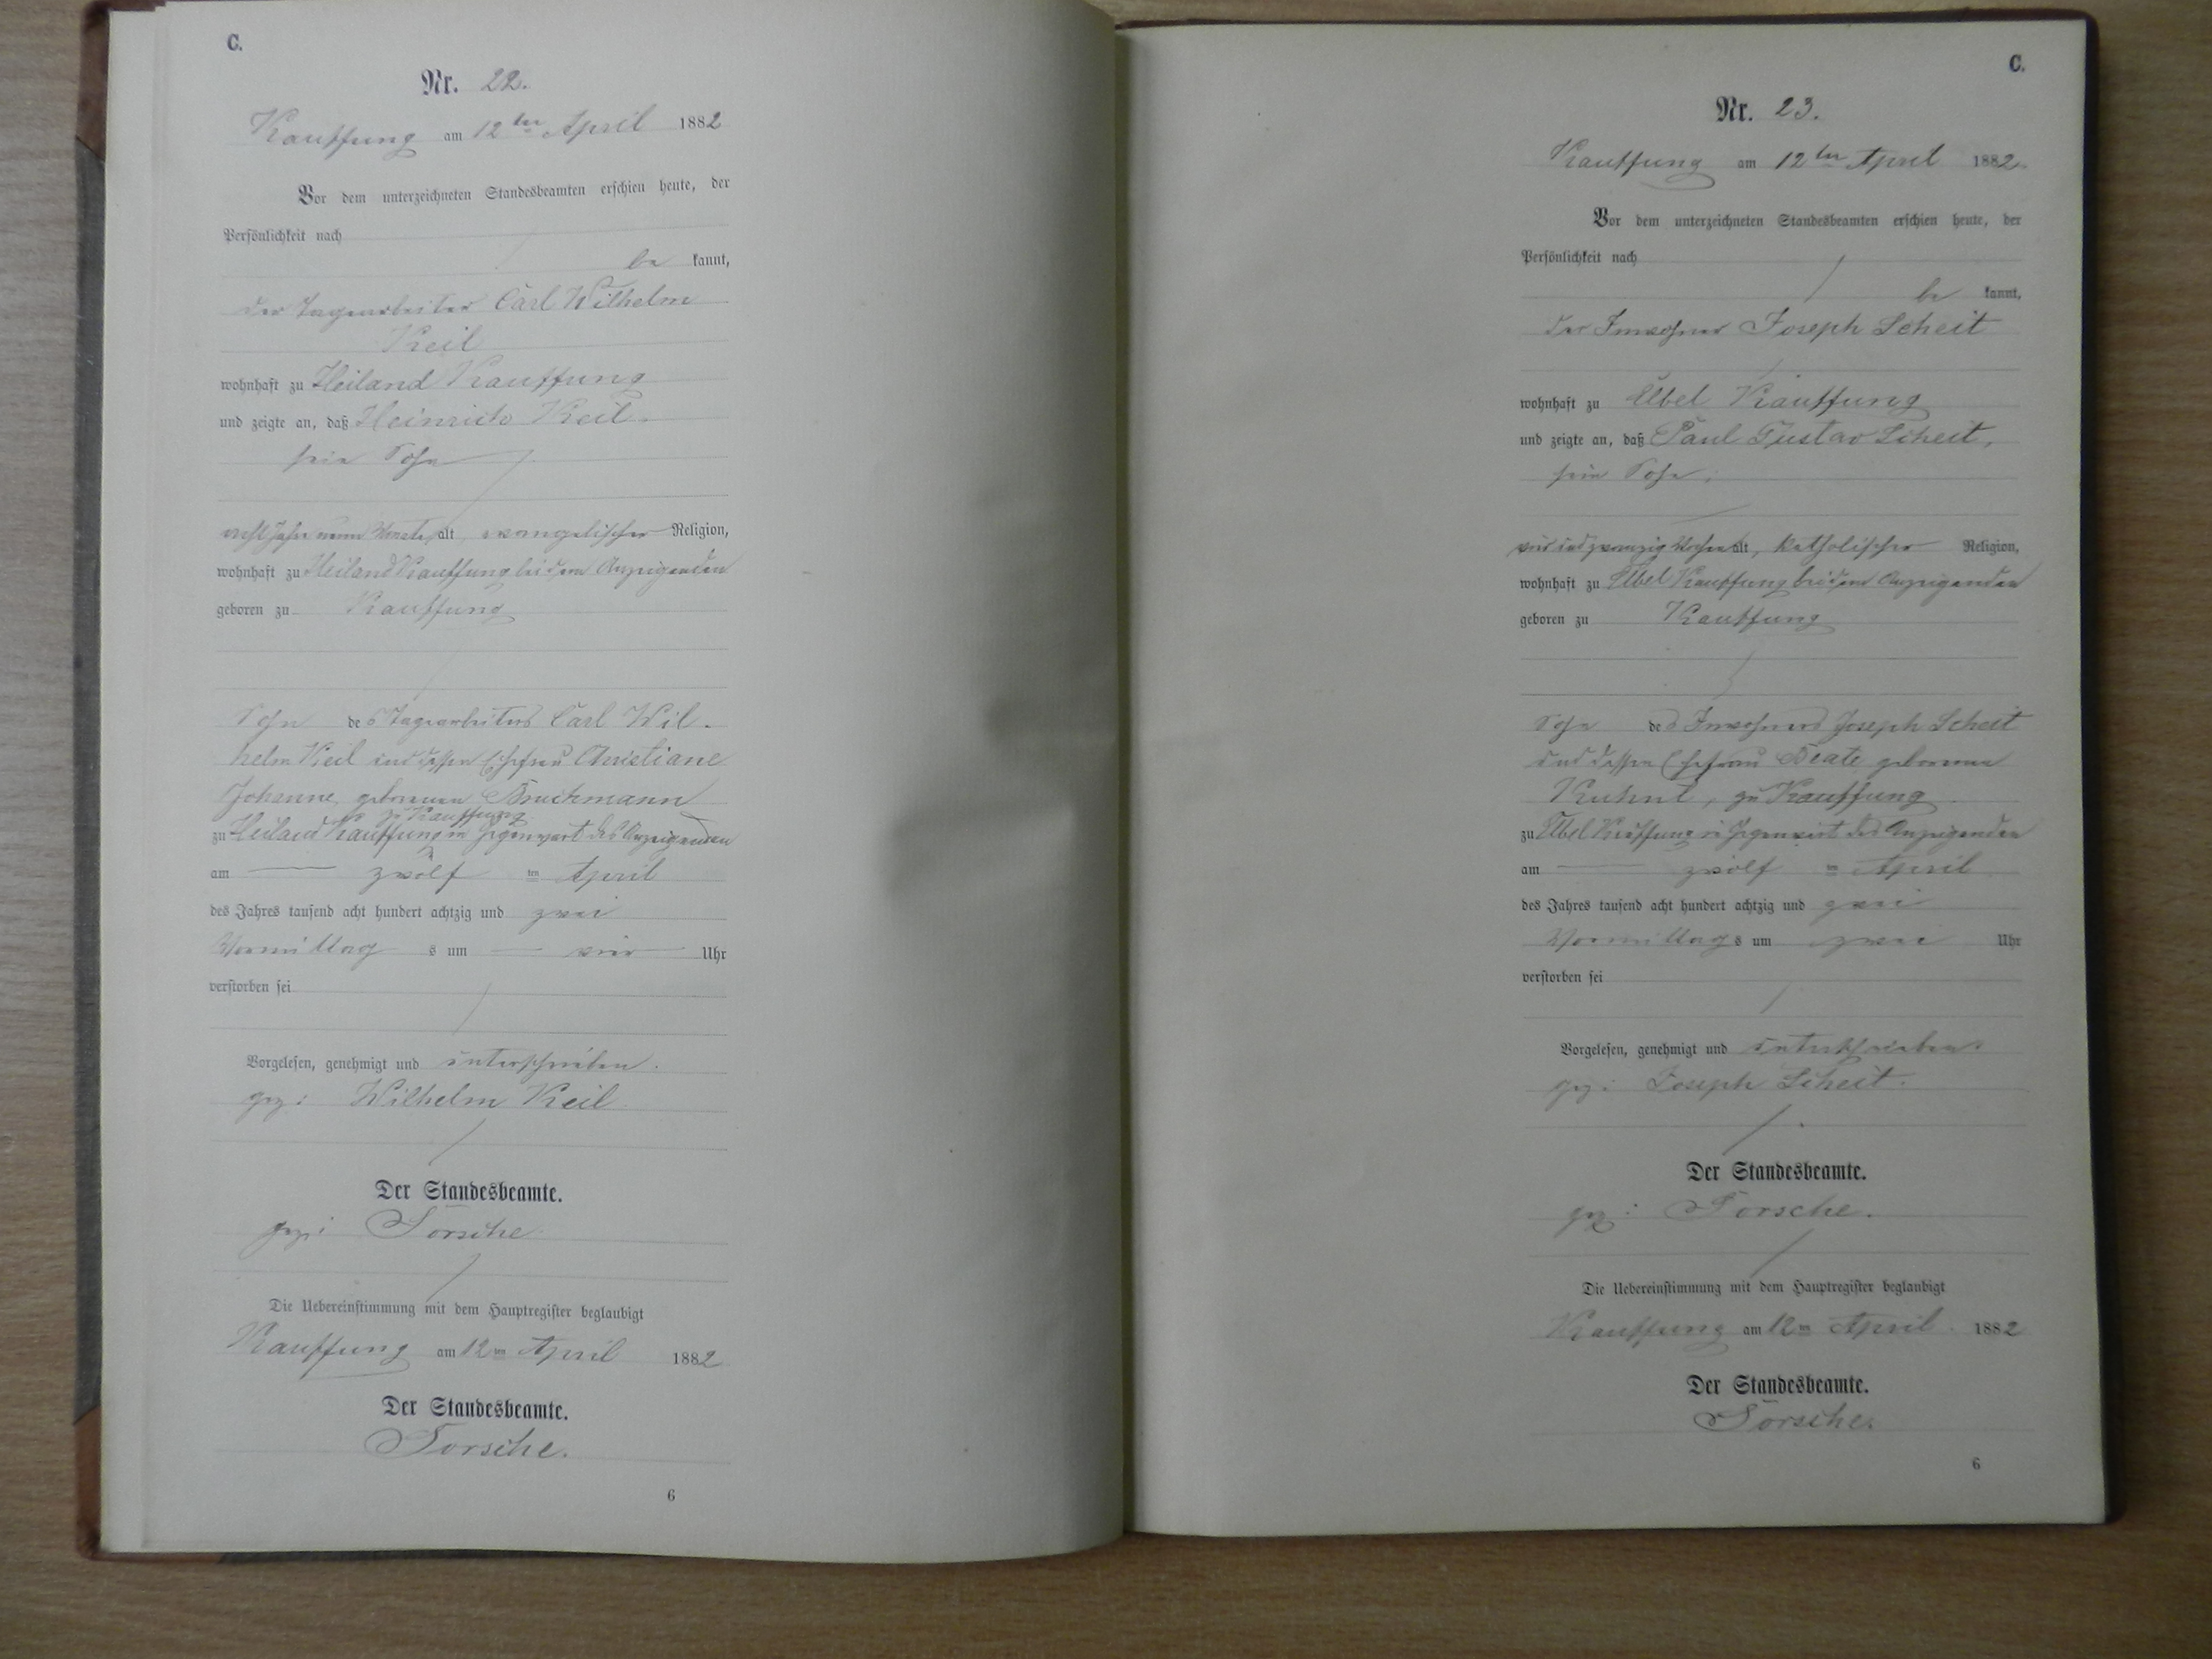 C.
Nr. 22.
Kauffung am 12ten April 1882
Vor dem unterzeichneten Standesbeamten erschien heute, der
Persönlichkeit nach
be kannt,
der Tagearbeiter Carl Wilhelm
Keil
wohnhaft zu Heiland Kauffung
und zeigte an, daß Heinrich Keil.
sein Sohn
acht Jahr neun Monate alt, evangelischer Religion,
wohnhaft zu Heiland Kauffung bei dem Anzeigenden
geboren zu Kauffung
Sohn des Tagearbeiters Carl Wil-
helm Keil und dessen Ehefrau Christiane
Johanne geborenen Bruchmann
zu Kauffung
zu Heiland Kauffung in Gegenwart des Anzeigenden
am zwölf ten April
des Jahres tausend acht hundert achtzig und zwei
Vormittag s um vier Uhr
verstorben sei
Vorgelesen, genehmigt und unterschrieben.
gez: Wilhelm Keil
Der Standesbeamte.
gez: Torsche.
Die Uebereinstimmung mit dem Hauptregister beglaubigt
Kauffung am 12ten April 1882
Der Standesbeamte.
Torsche.
6
C.
Nr. 23.
Kauffung am 12ten April 1882.
Vor dem unterzeichneten Standesbeamten erschien heute, der
Persönlichkeit nach
be kannt,
der Inwohner Joseph Scheit
wohnhaft zu Elbel Kauffung
und zeigte an, daß Paul Gustav Scheit,
sein Sohn,
vier und zwanzig Wochen alt, katholischer Religion,
wohnhaft zu Elbel Kauffung bei dem Anzeigenden
geboren zu Kauffung
Sohn des Inwohners Joseph Scheit
und dessen Ehefrau Beate geborenen
Kuhnt, zu Kauffung
zu Elbel Kauffung in Gegenwart des Anzeigenden
am zwölf ten April
des Jahres tausend acht hundert achtzig und zwei
Vormittag s um zwei Uhr
verstorben sei
Vorgelesen, genehmigt und unterschrieben.
gez: Joseph Scheit.
Der Standesbeamte.
gez: Torsche.
Die Uebereinstimmung mit dem Hauptregister beglaubigt
Kauffung am 12ten April 1882
Der Standesbeamte.
Torsche.
6